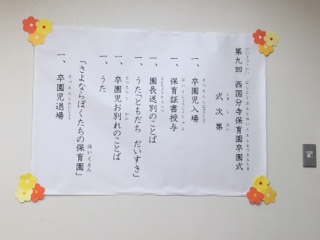 第九回 西国分寺保育園卒園式
式次第
一、卒園児入場
一、保育証書授与
一、園長送別のことば
一、うた「ともだち だいすき」
一、卒園児お別れのことば
一、うた
「さよならぼくたちの保育園」
一、卒園児退場